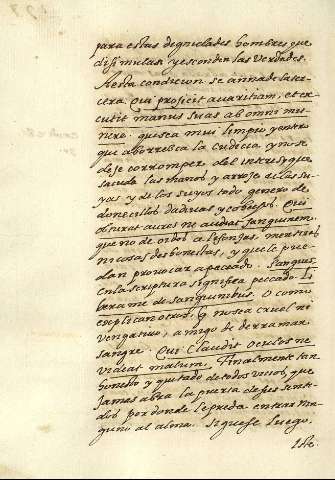 para estas dignidades hombres que
disimulan y esconden las verdades.
A esta condicion se annade la ter-
cera, Qui projicit avaritiam, et ex-
cutit manus suas ab omni mu-
nere. que sea mui limpio y entero
que aborresca la cudicia y no se
deje corromper del interes, que
sacuda las manos y arroje de las su-
yas y de los suyos todo genero de
donecillos dadivas y cohechos. Qui
obturat aures ne audiat sanguinem
que no de oidos a lisonjas mentiras
ni cosas desonestas, y que le pue-
dan provocar a peccado. Sanguis
en la scriptura significa peccado. Li
bera me de sanguinibus. O como
explican otros, q no sea cruel ni
vengativo, amigo de derramar
sangre. Qui Claudit oculos ne
videat malum. Finalmente tan
honesto y quitado de todos vicios, que
jamas abra la puerta de sus senti-
dos por donde le pueda entrar nin
guno al alma. Siguese luego,